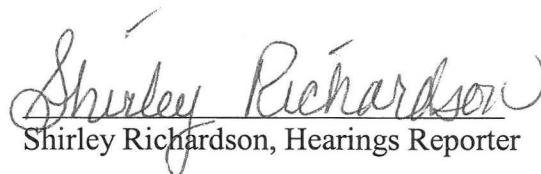 Shirley Richardson
Shirley Richardson, Hearings Reporter